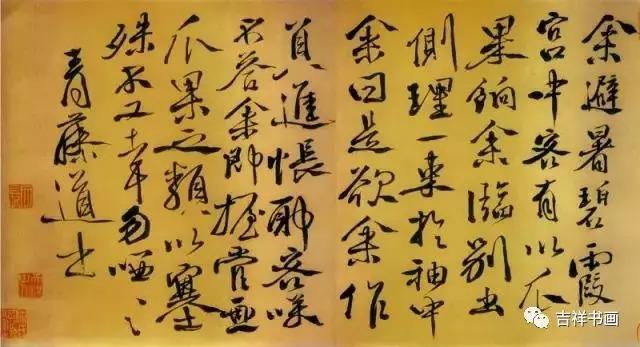 余避暑碧霞
宫中客有以瓜
果饷余临别出
侧理一束于袖中
余曰是欲余作
员进帐耶客咲
不答余即握管画
瓜果之类以塞
殊不
青藤道士
吉祥书画